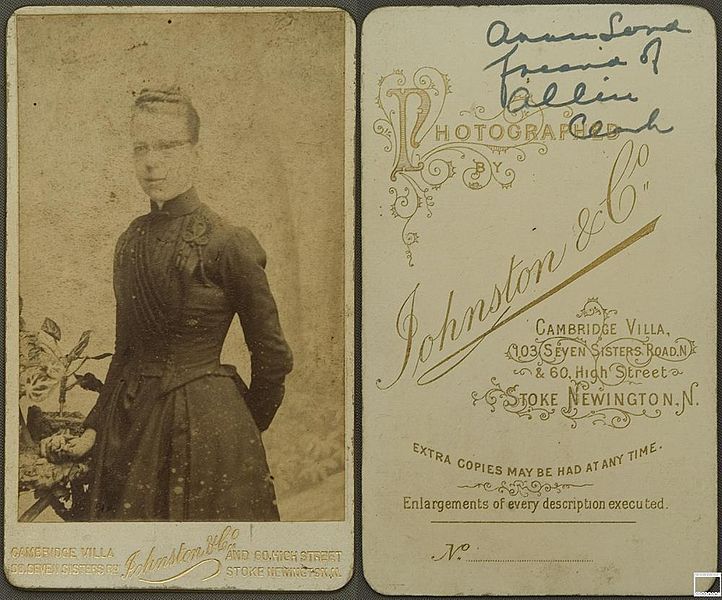 CAMBRIDGE VILLA
Johnston & Co
AND 60, HIGH STREET
STOKE NEWINGTON, N.
friend of
Allin
Clark
PHOTOGRAPHED
BY
Johnston & Co
CAMBRIDGE VILLA,
103, SEVEN SISTERS ROAD, N
& 60, HIGH STREET
STOKE NEWINGTON, N.
EXTRA COPIES MAY BE HAD AT ANY TIME.
Enlargements of every description executed.
No